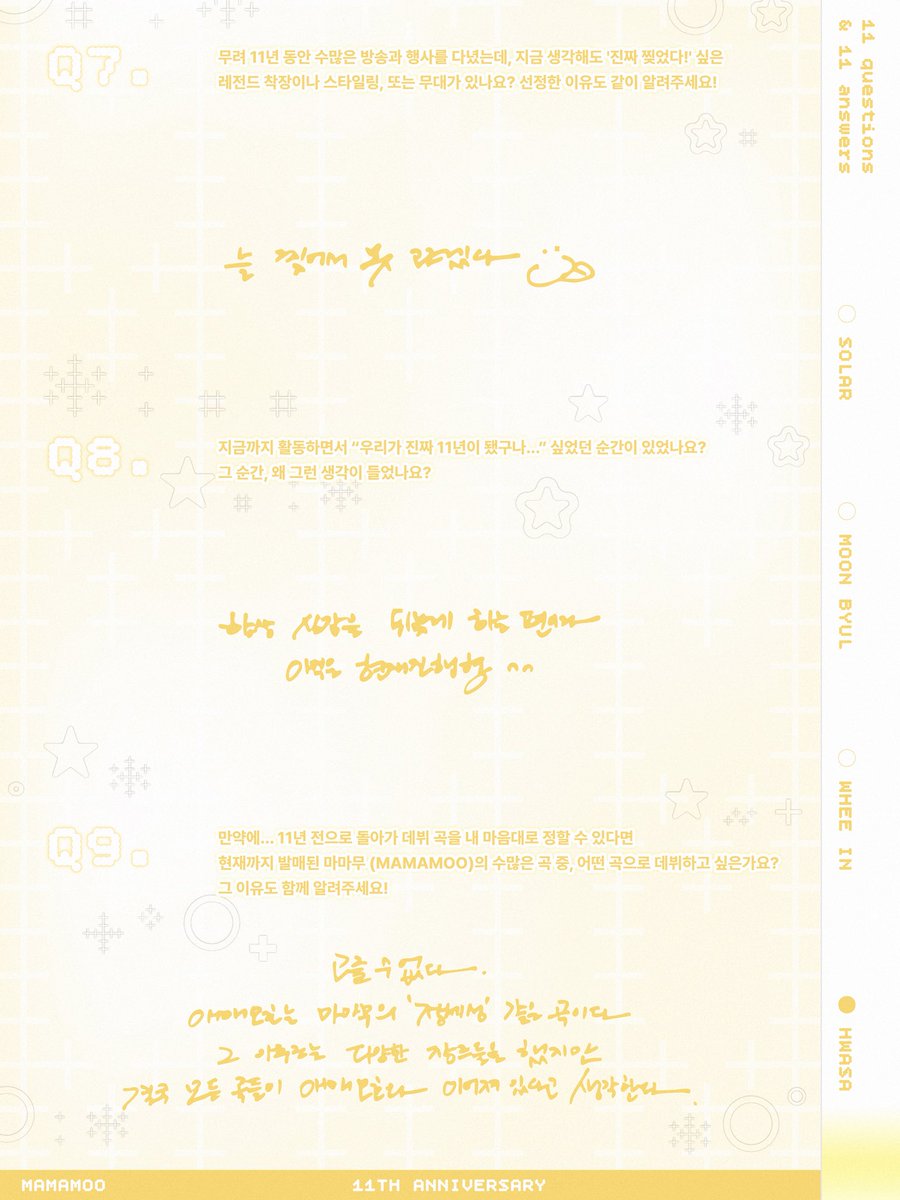 Q7.
무려 11년 동안 수많은 방송과 행사를 다녔는데, 지금 생각해도 '진짜 찢었다!' 싶은
레전드 착장이나 스타일링, 또는 무대가 있나요? 선정한 이유도 같이 알려주세요!
늘 찢어서 못 고르겠다
Q8.
지금까지 활동하면서 “우리가 진짜 11년이 됐구나...” 싶었던 순간이 있었나요?
그 순간, 왜 그런 생각이 들었나요?
항상 시작을 되뇌게 하는 편이라
이별은 현재진행형 ^^
Q9.
만약에... 11년 전으로 돌아가 데뷔 곡을 내 마음대로 정할 수 있다면
현재까지 발매된 마마무 (MAMAMOO)의 수많은 곡 중, 어떤 곡으로 데뷔하고 싶은가요?
그 이유도 함께 알려주세요!
고를 수 없다.
애매모호는 마마무의 '정체성' 같은 곡이다
그 이후로는 다양한 장르들을 했지만
결국 모든 곡들이 애매모호라 이어져 있다고 생각한다.
11 questions
& 11 answers
SOLAR
MOON BYUL
WHEE IN
HWASA
MAMAMOO
11TH ANNIVERSARY